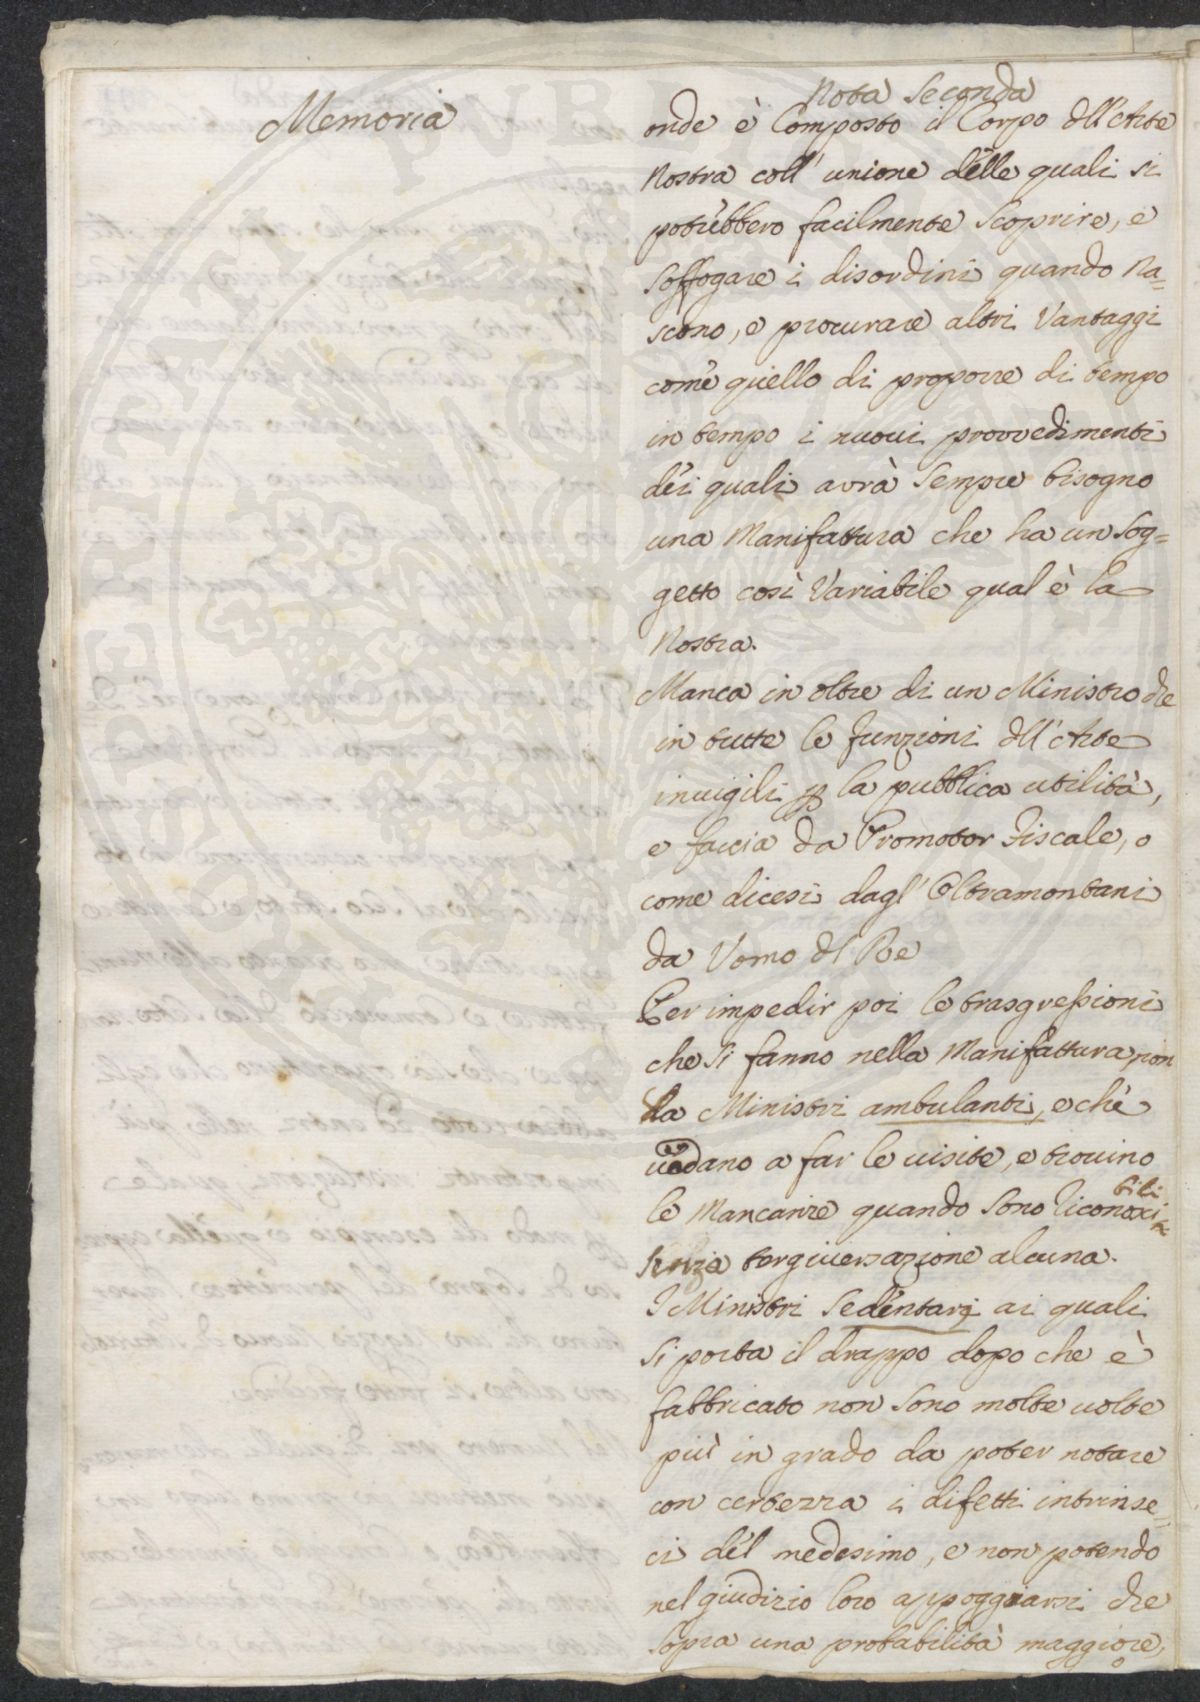 Memoria
Nota Seconda
onde è Composto il Corpo dll'Arte
Nostra coll' unione delle quali si
potrebbero facilmente Scoprire, e
Soffogare i disordini quando Na=
scono, e procurare altri Vantaggi
come quello di proporre di tempo
in tempo i nuovi provvedimenti
dei quali avrà Sempre bisogno
una Manifattura che ha un Sog=
getto così Variabile qual è la
Nostra.
Manca in oltre di un Ministro che
in tutte le funzioni dll'Arte
invigili p la pubblica utilità,
e faccia da Promotor Fiscale, o
come dicesi dagl' Oltramontani
da Uomo dl Re
Per impedir poi le trasgressioni
che Si fanno nella Manifattura, non
da Ministri ambulanti, e che
vadano a far le visite, e trovino
le Mancanze quando Sono riconosci
bili
Senza tergiversazione alcuna.
I Ministri Sedentarj ai quali
Si porta il drappo dopo che è
fabbricato non Sono molte volte
più in grado da poter notare
con certezza i difetti intrinse=
ci del medesimo, e non potendo
nel giudizio loro appoggiarsi che
Sopra una probabilità maggiore,